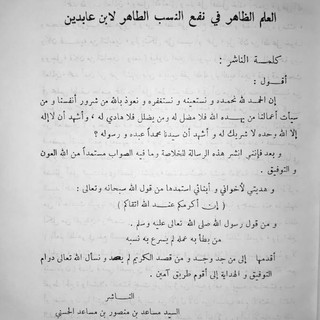 العلم الظاهر في نفع النسب الطاهر لابن عابدين
كلمة الناشر :
أقول :
إن الحمد لله نحمده و نستعينه و نستغفره و نعوذ بالله من شرور أنفسنا و من
سيأت أعمالنا من يهده الله فلا مضل له و من يضلل فلا هادي له ، و أشهد أن لاإله
إلا الله وحده لا شريك له و أشهد أن سيدنا محمداً عبده و رسوله ؟
و بعد فإنني انشر هذه الرسالة للخلاصة وما فيه الصواب مستمداً من الله العون
و التوفيق .
و هديتي لأخواني و أبنائي استمدها من قول الله سبحانه وتعالى :
( إن أكرمكم عند الله اتقاكم )
و من قول رسول الله صلى الله تعالى عليه وسلم .
من بطأ به عمله لم يسرع به نسبه
أقدمها إلى من جد وجد و من قصد الكريم لم يصد و نسأل الله تعالى دوام
التوفيق و الهداية إلى أقوم طريق آمين .
الناشر
السيد مساعد بن منصور بن مساعد الحسني